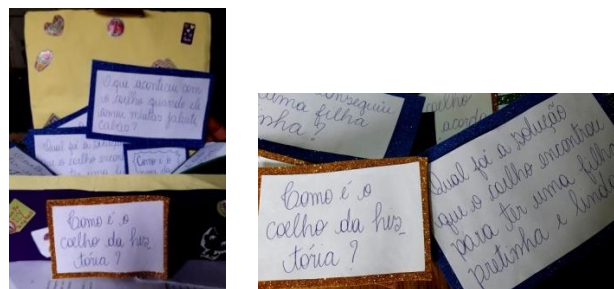 O que aconteceu com
o coelho quando ele
comeu muitas jabuti
cabas?
Qual foi a solução
que o coelho encon
Como é o
Como é o
coelho da his_
tória ?
conseguiu
uma filha
nha ?
coelho
acord
Como é o
coelho da his_
tória ?
Qual foi a solução
que o coelho encontrou
para ter uma filha
pretinha e linda